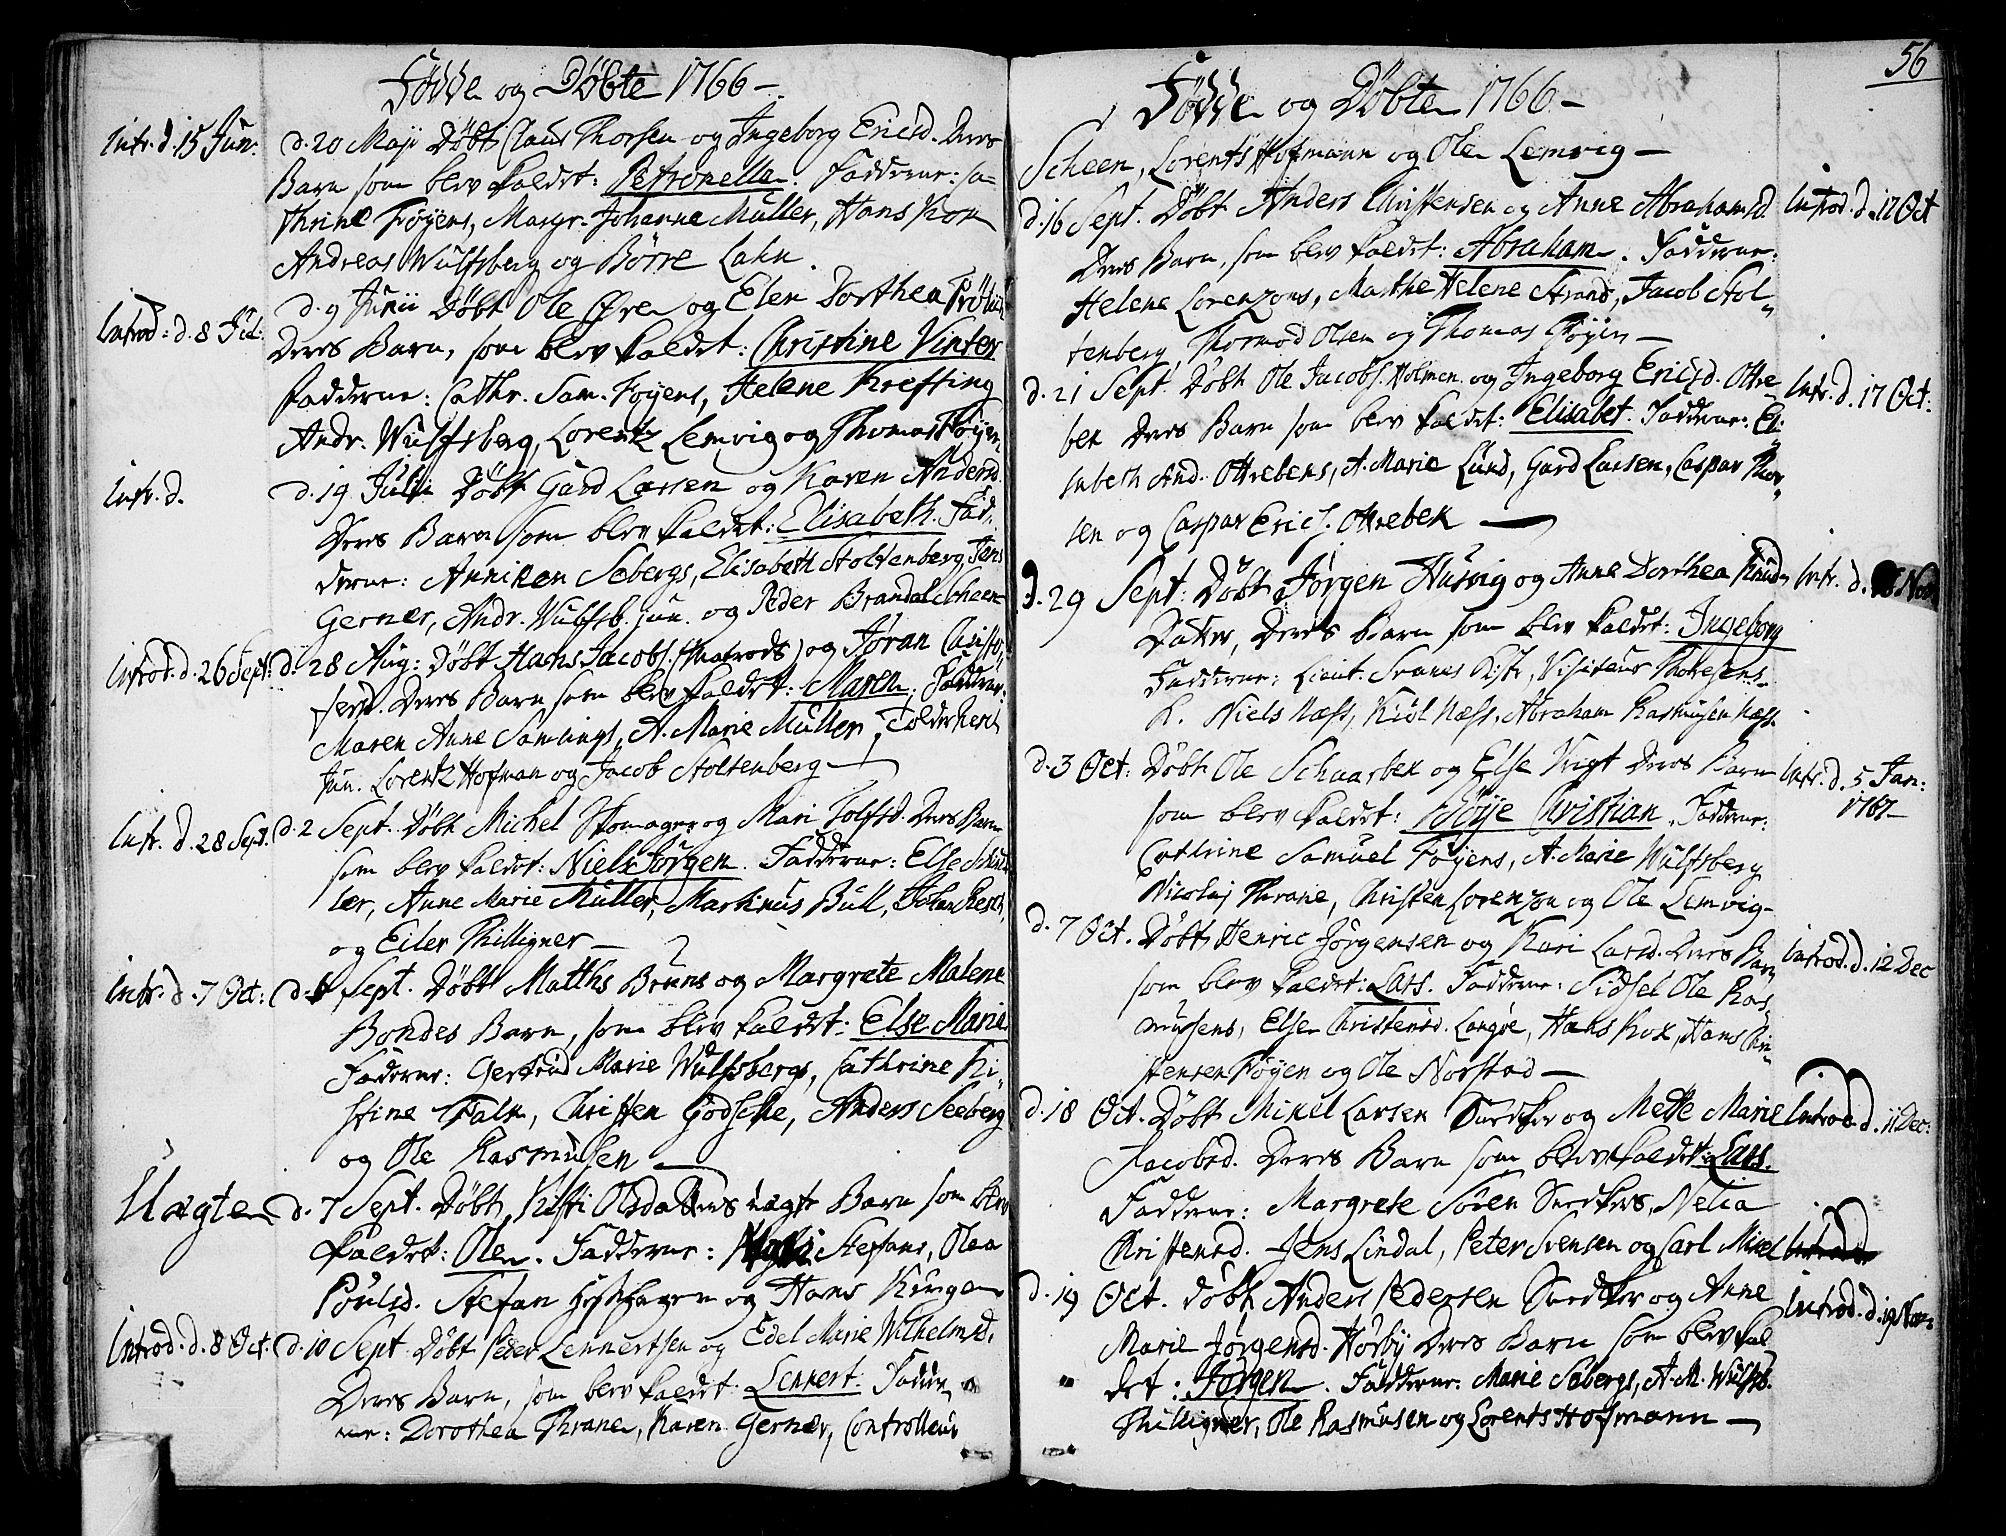 Födde og Döbte 1766 –
Intr. d. 15 Jun. d. 20 Maji Döbt Claus Thorsen og Ingeborg Ericsd. Deres
Barn som blev kaldet: Petronella. Fadderne: Ca-
thrine Föyens, Margr. Johanne Müller, Hans Kox
Andreas Wulfsberg og Börre Lahn.
Introd: d. 8 Jul: d. 9 Junii Döbt Ole Øre og Elen Dorthea
Deres Barn, som blev kaldet: Christine Vinter
Fadderne: Cathr. Sam. Föyens, Helene Krefting
Andr. Wulfsberg, Lorentz Lemvig og Thomas Föyen
Intr. d. d. 19 Julii Döbt Gard Larsen og Karen Andersd.
Deres Barn som blev kaldet: Elisabeth. Fad-
derne: Anniken Sebergs, Elisabeth Stoltenberg, Jens
Gerner, Andr. Wulfsb. jun. og Peder Brandal Scheen
Introd. d. 26 Sept: d. 28 Aug: Döbt Hans Jacobs. (Matrods) og Jöran Christo-
fersd. Deres Barn som blev kaldet: Maren. Fadderne:
Maren Anne Samlings, A. Marie Müller, Tolder Resch
Jun. Lorentz Hofman og Jacob Stoltenberg –
Intr. d. 28 Sept. d. 2 Sept. Döbt Michel Skomager og Mari Tolfsd. Deres Barn
som blev kaldet: Niels Jörgen. Fadderne: Else
lær, Anne Marie Müller, Markus Bull, Johan Resch,
og Eiler Thilligner –
Intr. d. 7 Oct: d. Sept. Döbt Matths Bruns og Margrete Malene
Bondes Barn, som blev kaldet: Else Marie
Fadderne: Gertrud Marie Wulfsbergs, Cathrine Ki-
stine Falk, Christen Godsche, Anders Seeberg
og Ole Rasmusen –
Uægte d. 7 Sept. Döbt Kisti Olsdatters uægte Barn som blev
kaldet: Ole. Fadderne: Stefans, Olea
Poulsd. Stefan og Hans
Introd. d. 8 Oct. d. 10 Sept Döbt Peder Lennertsen og Edel Marie Wilhelmsd.
Deres Barn, som blev kaldet: Lennert. Fadder-
ne: Dorothea Thrane, Karen Gerner, Controlleur
56
Födde og Döbte 1766 –
Scheen, Lorents Hofmann og Ole Lemvig –
d. 16 Sept. Döbt Anders Christensen og Anne Abrahamsd. Introd. d. 12 Oct
Deres Barn, som blev kaldet: Abraham. Fadderne:
Helene Lorenzons, Marthe Helene Strand, Jacob Stol-
tenberg, Thormod Olsen og Thomas Föyen –
d. 21 Sept. Döbt Ole Jacobs. Holmen og Ingeborg Ericsd. Ottre- Intr. d. 17 Oct:
bek Deres Barn som blev kaldet: Elisabet. Fadderne: Eli-
sabeth And. Ottrebeks, A. Marie Lund, Gard Larsen, Caspar Thor-
sen og Caspar Erics. Ottrebek –
d. 29 Sept: Döbt Jörgen Husvig og Anne Dorthea Knuds Intr. d. Nov
Datter, Deres Barn som blev kaldet: Ingeborg
Fadderne: Lieut. Svanes Kiste, Visiteur Thoresens
K. Niels Næss, Kiöl Næss, Abraham Rasmusen Næss
d. 3 Oct: Döbt Ole Schaarbek og Else Vigt Deres Barn Intr. d. 5 Jan:
1767 –
som blev kaldet: Böije Christian. Fadderne:
Cathrine Samuel Föyens, A. Marie Wulfsberg
Nicolaj Thrane, Christen Lorenzon og Ole Lemvig –
d. 7 Oct. Döbt Henric Jörgensen og Kari Larsd. Deres Barn Introd. d. 12 Dec
som blev kaldet: Lars. Fadderne: Sidsel Ole Ras-
musens, Else Christensd. Langöe, Hans Kox, Hans Chri-
stensen Föyen og Ole Norstad –
d. 18 Oct. Döbt Mikel Larsen Snedker og Mette Marie Introd. d. 11 Dec:
Jacobsd. Deres Barn som blev kaldet: Lars.
Fadderne: Margrete Sören Snedkers, Nelia
Christensd. Jens Lindal, Peter Svensen og Carl Mikel
d. 19 Oct. Döbt Anders Pedersen Snedker og Anne Introd. d. 19 Nov:
Marie Jörgensd. Hörby Deres Barn som blev kal-
det: Jörgen. Fadderne: Marie Sebergs, A. M. Wulfsb.
Thilligner, Ole Rasmusen og Lorents Hofmann –